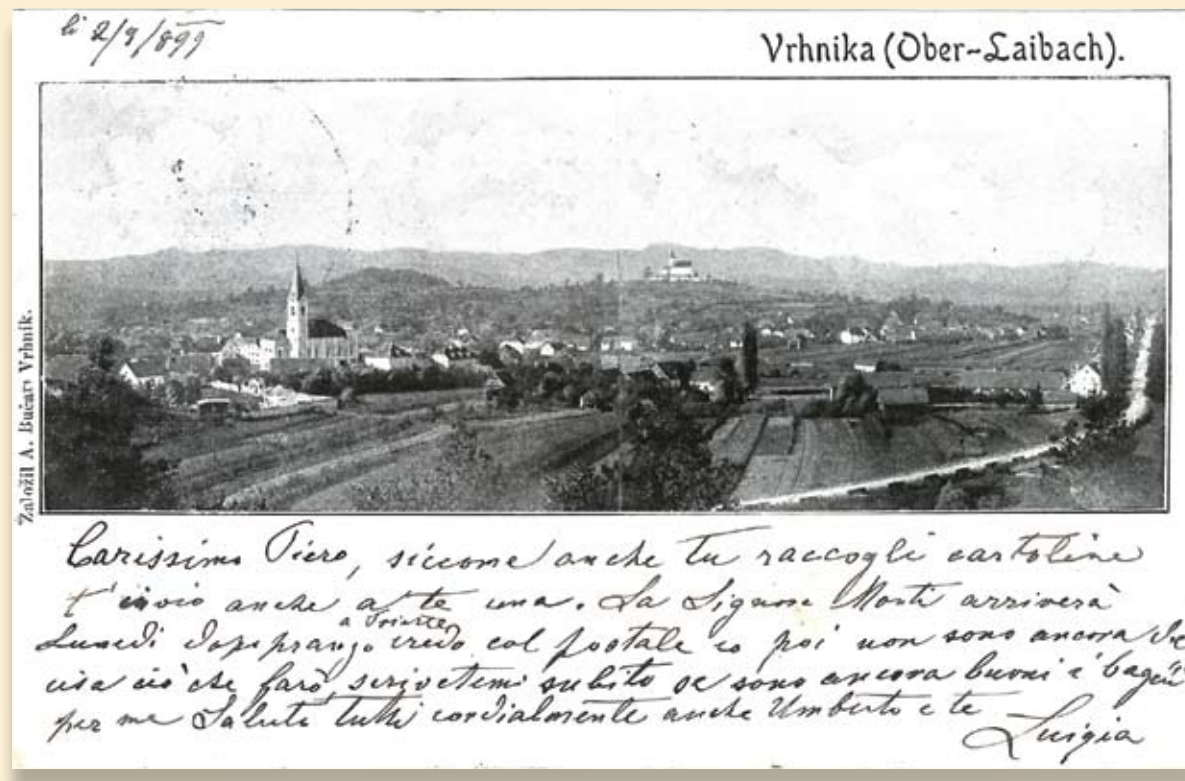 li 2/9/899
Vrhnika (Ober-Laibach).
Založil A. Bučar, Vrhnik.
Carissimo Piero, siccome anche tu raccogli cartoline
t'invio anche a te una. La Signora Monti arriverà
Lunedì dopopranzo a Trieste credo col postale io poi non sono ancora de
cisa ciò che farò, scrivetemi subito se sono ancora buoni i bagni
per me Saluta tutti cordialmente anche Umberto e te
Luigia